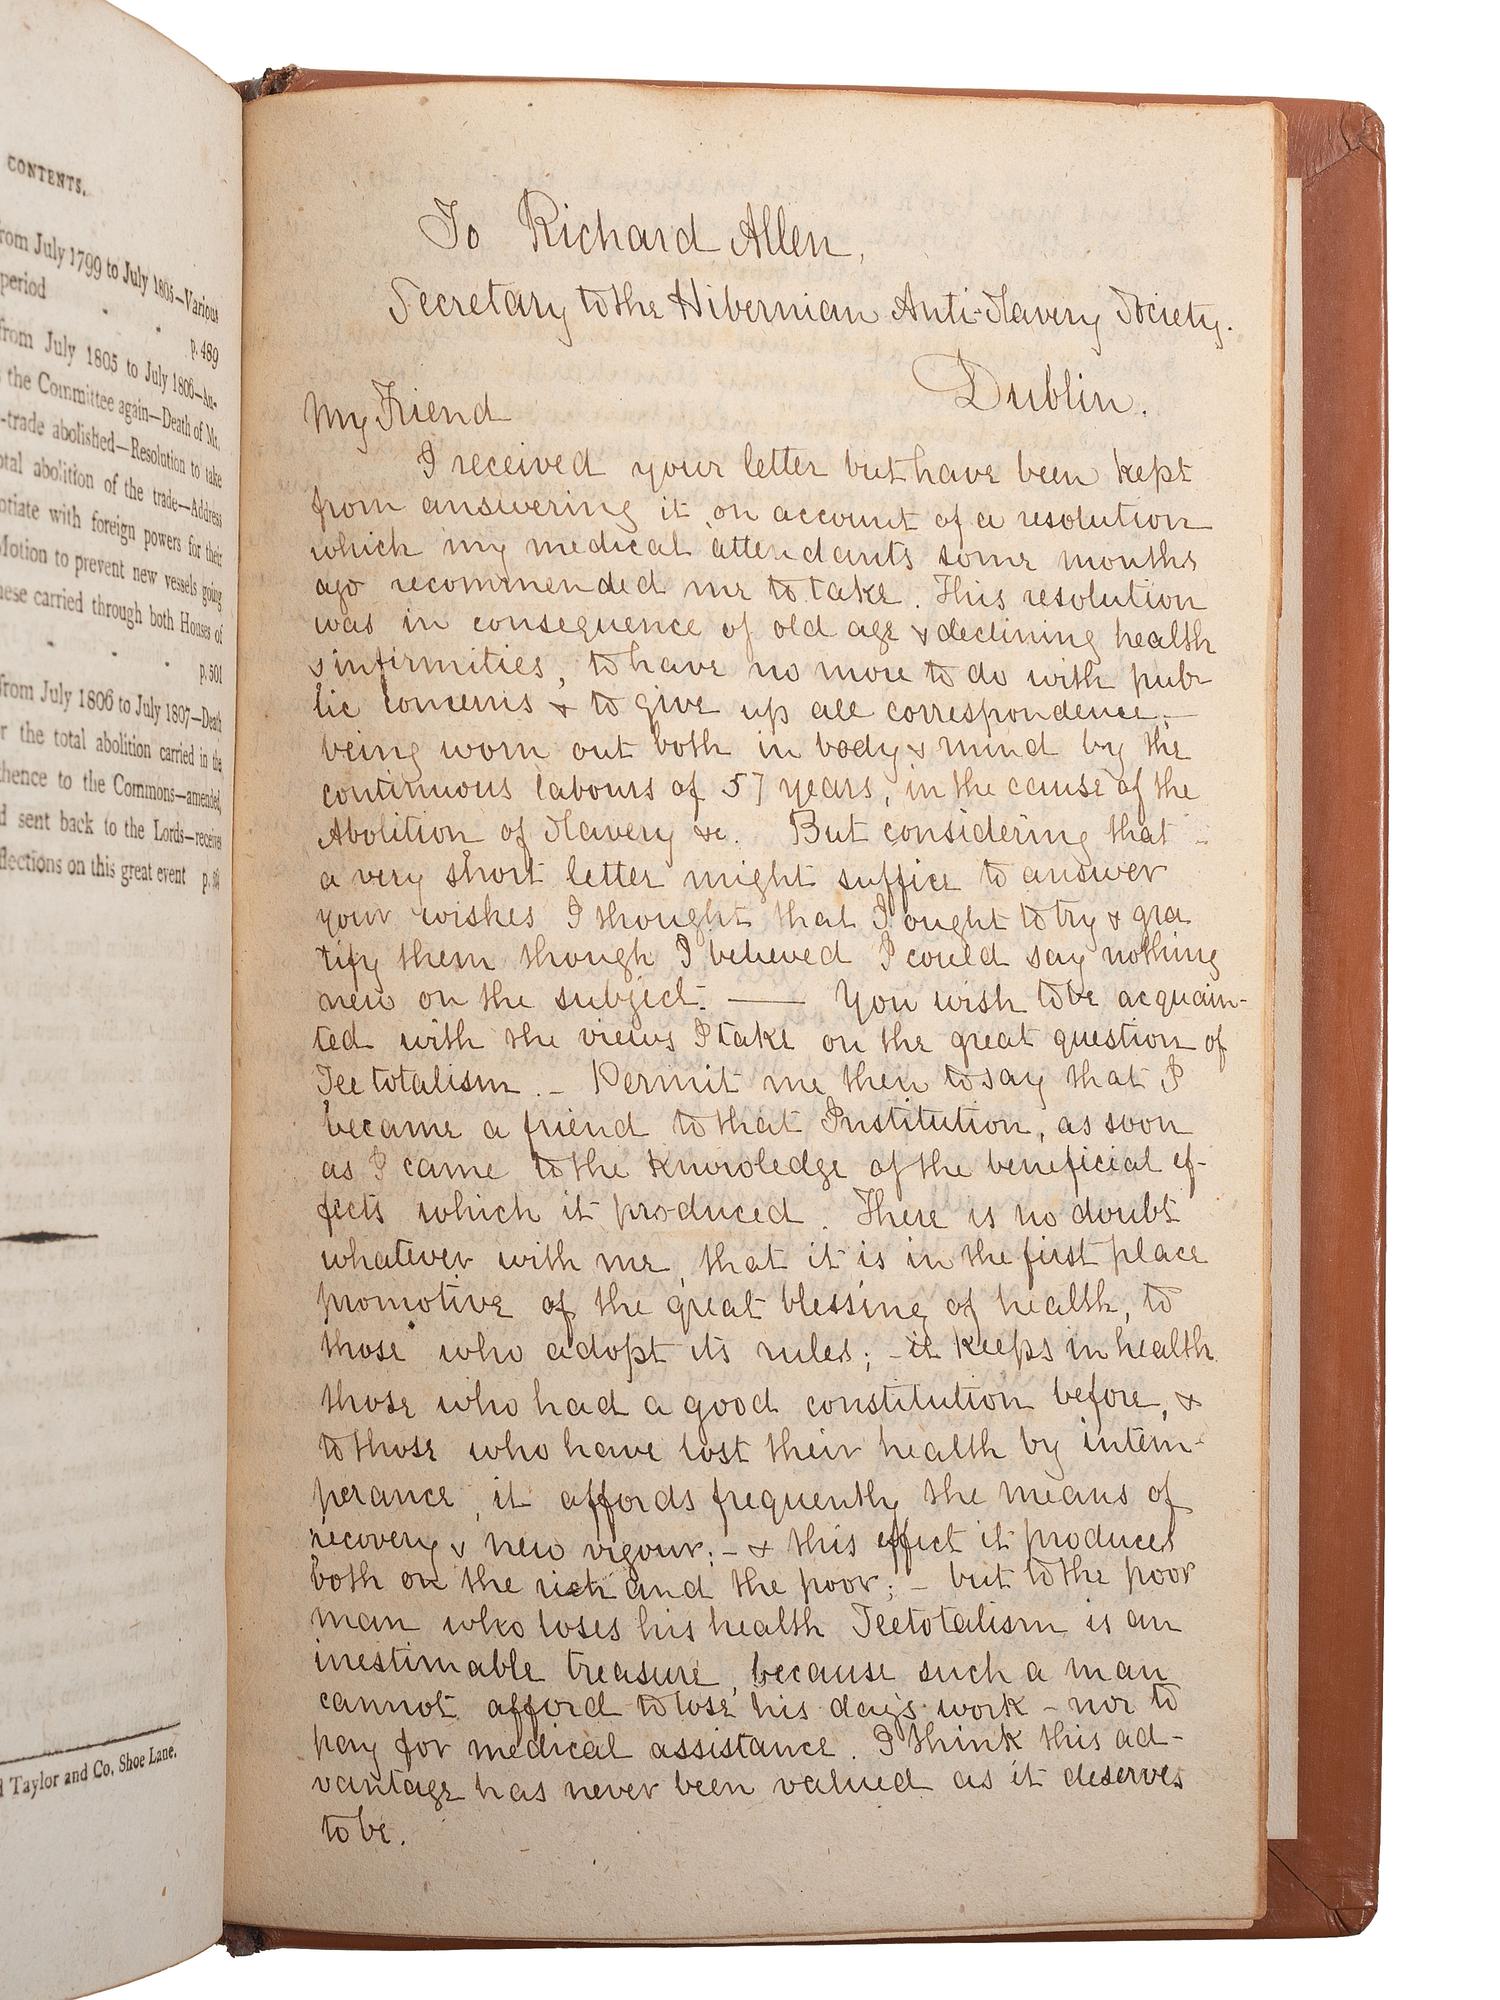 CONTENTS.
rom July 1799 to July 1805—Various
period
p. 489
from July 1805 to July 1806—An-
the Committee again—Death of Mr.
-trade abolished—Resolution to take
otal abolition of the trade—Address
otiate with foreign powers for their
Motion to prevent new vessels going
hese carried through both Houses of
p. 501
from July 1806 to July 1807—Death
r the total abolition carried in the
thence to the Commons—amended,
d sent back to the Lords—receives
flections on this great event p.
d Taylor and Co, Shoe Lane.
To Richard Allen,
Secretary to the Hibernian Anti-Slavery Society.
Dublin.
My Friend
I received your letter but have been kept
from answering it, on account of a resolution
which my medical attendants some months
ago recommended me to take. This resolution
was in consequence of old age & declining health
& infirmities, to have no more to do with pub-
lic concerns & to give up all correspondence,—
being worn out both in body & mind by the
continuous labours of 57 years, in the cause of the
Abolition of Slavery &c. But considering that
a very short letter might suffice to answer
your wishes I thought that I ought to try & gra
tify them though I believed I could say nothing
new on the subject. — You wish to be acquain-
ted with the views I take on the great question of
Teetotalism. — Permit me then to say that I
became a friend to that Institution, as soon
as I came to the knowledge of the beneficial ef-
fects which it produced. There is no doubt
whatever with me, that it is in the first place
promotive of the great blessing of health, to
those who adopt its rules; - it keeps in health
those who had a good constitution before, &
to those who have lost their health by intem-
perance, it affords frequently the means of
recovery & new vigour; - & this effect it produces
both on the rich and the poor; - but to the poor
man who loses his health Teetotalism is an
inestimable treasure, because such a man
cannot afford to lose his day's work - nor to
pay for medical assistance. I think this ad-
vantage has never been valued as it deserves
to be.